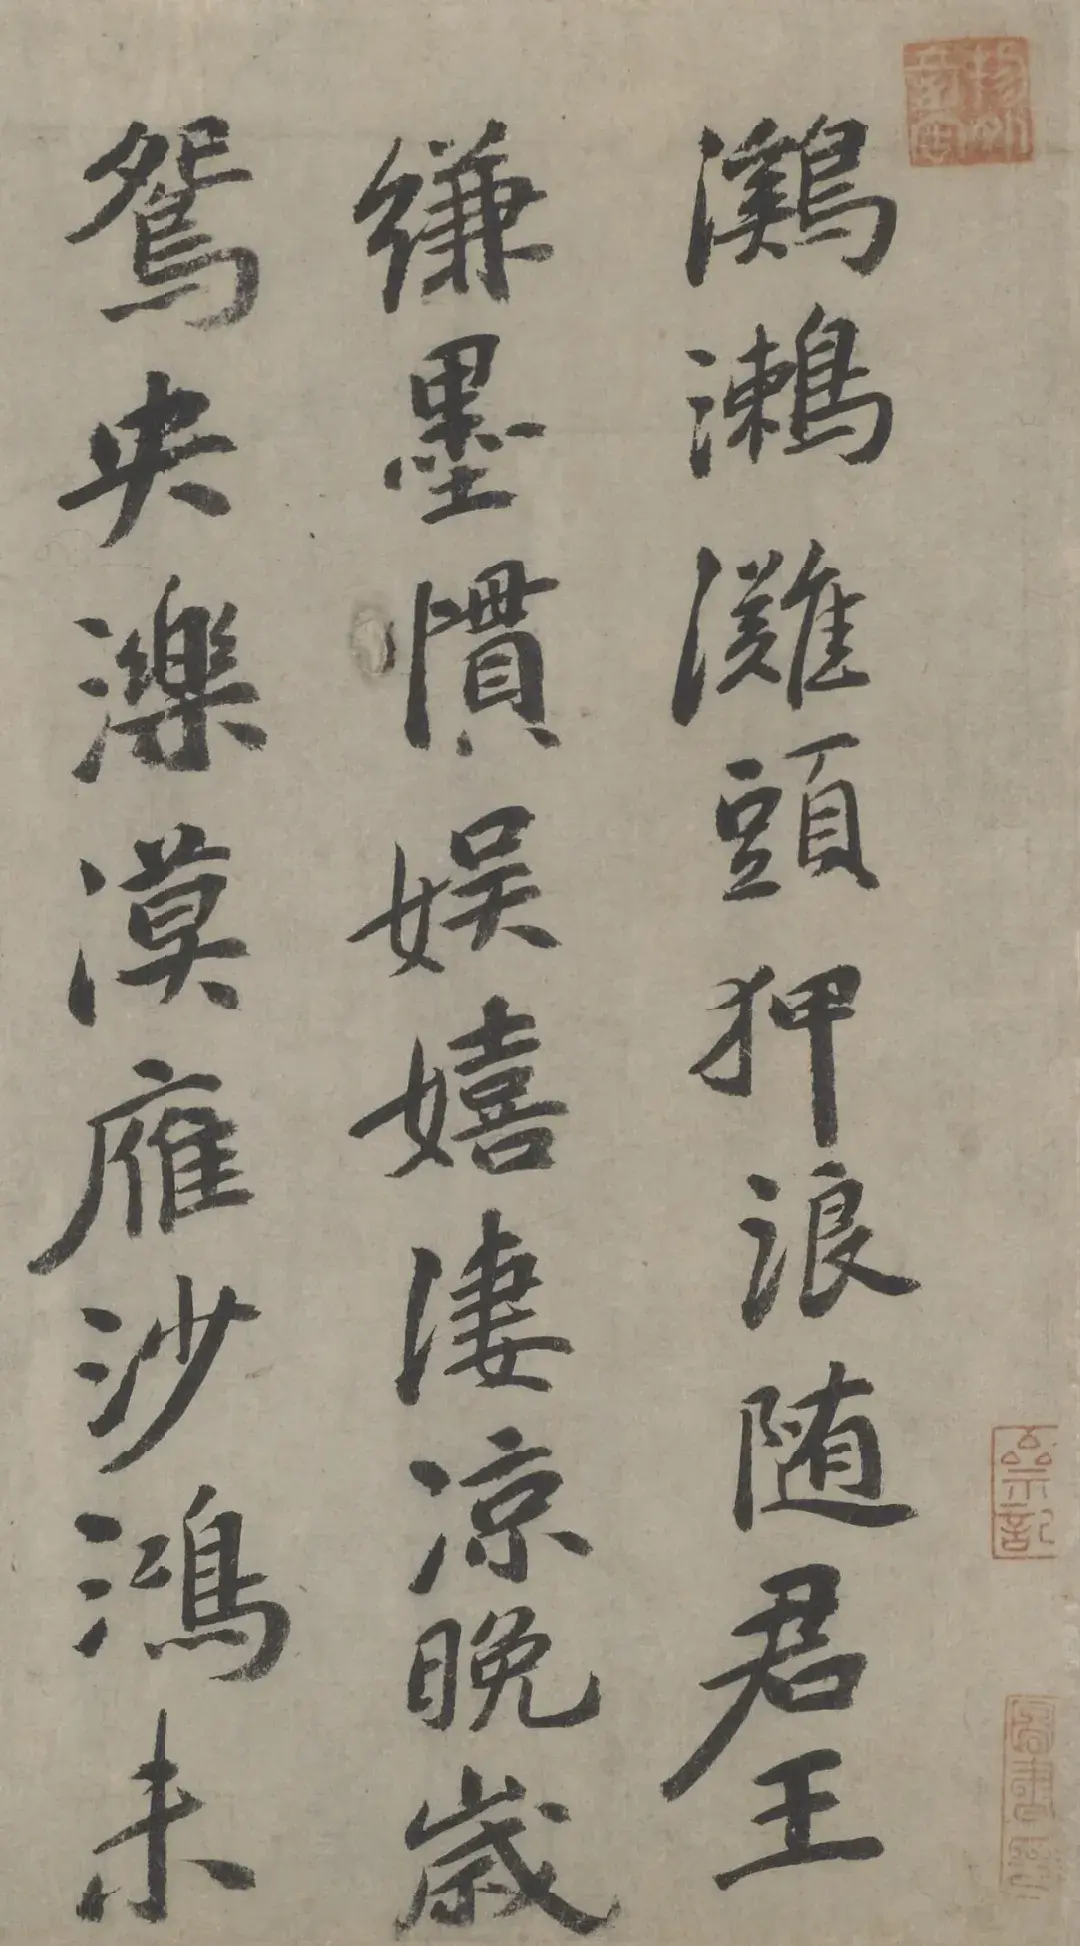 鸂鶒灘頭狎浪随君王
縑墨慣娱嬉凄凉晚歲
鴛央濼漠雁沙鴻未